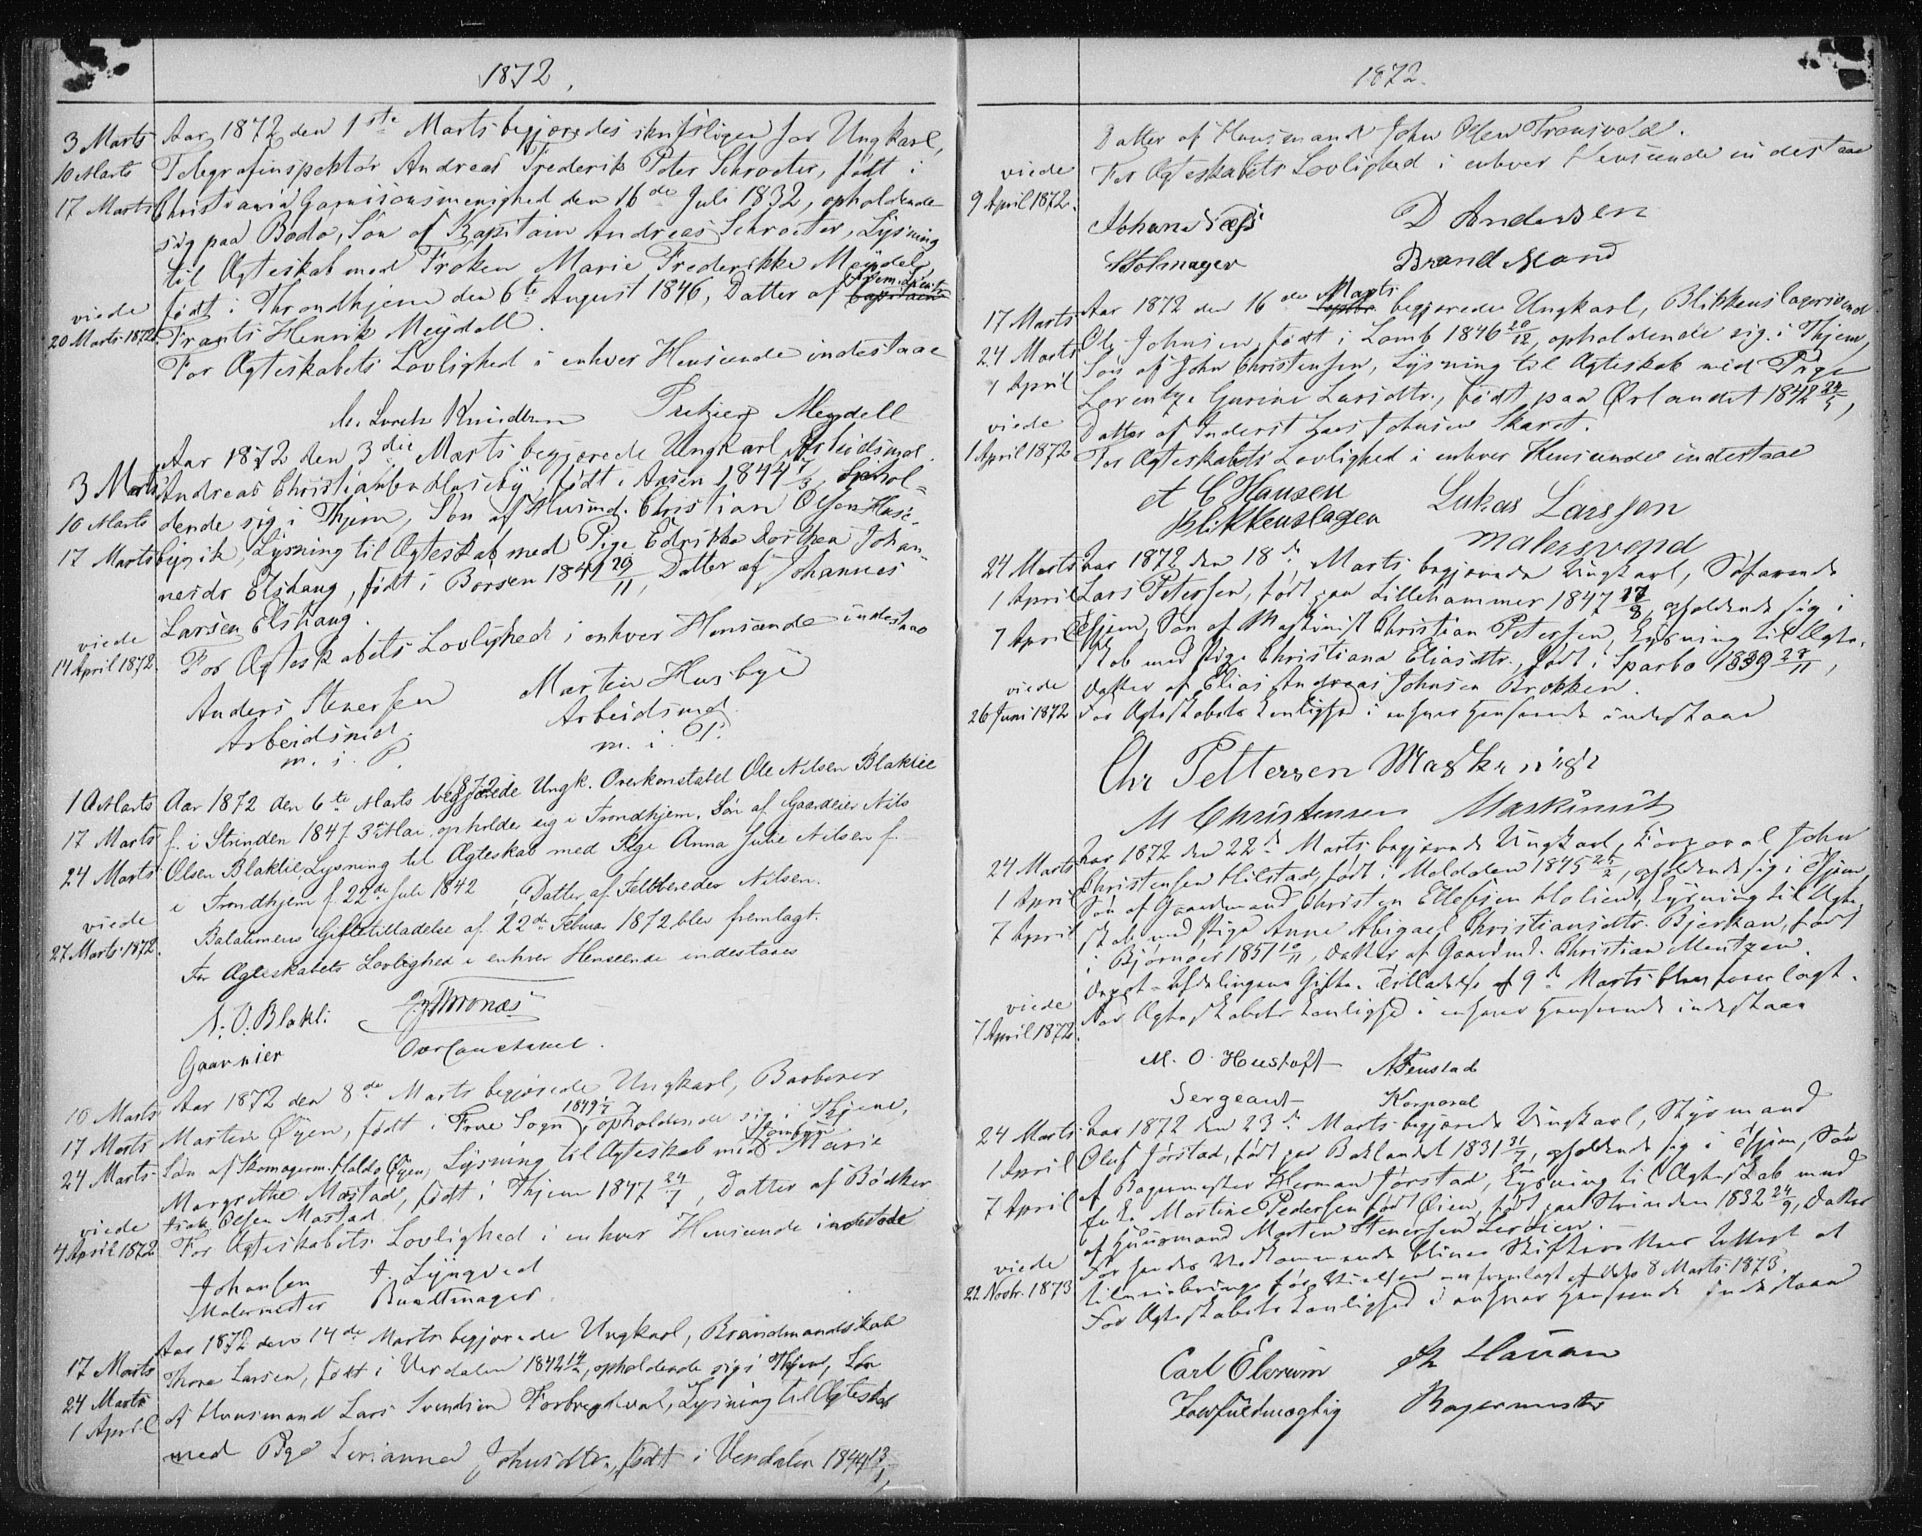 1872.
3 Marts Aar 1872 den 1ste Marts begjæredes skriftligen for Ungkarl,
10 Marts Telegrafinspektør Andreas Frederik Peter Schroeter, født i
17 Marts Christiania Garnisonsmenighed den 16de Juli 1832, opholdende
sig paa Bodø, Søn af Kapitain Andreas Schroeter, Lysning
til Ægteskab med Frøken Marie Frederikke Meydell,
viede født i Throndhjem den 6te August 1846, Datter af
20 Marts 1872. Frants Henrik Meydell.
For Ægteskabets Lovlighed i enhver Henseende indestaae
Knudtzon Meydell
Aar 1872 den 3die Marts begjærede Ungkarl Arbeidsmd.
3 Marts Andreas Christiansen Huseby, født i Aasen 1844 ophol-
10 Marts dende sig i Thjem, Søn af Husmd. Christian Olsen Huse-
17 Marts Lysning til Ægteskab med Pige Edrikke Dorthea Johan-
nesdr Elshaug, født i Børsen 1841 29/11, Datter af Johannes
Larsen Elshaug.
viede
14 April 1872. For Ægteskabets Lovlighed i enhver Henseende indestaae
Anders Stenersen Martin Husbye
Arbeidsmd. Arbeidsmd.
m. i. P. m. i. P.
10 Marts Aar 1872 den 6te Marts 1872 begjærede Ungk. Overkonstabel Ole Nilsen Blaklie
17 Marts f. i Strinden 1847 3 Mai, opholder sig i Trondhjem, Søn af Gaardeier Nils
24 Marts Olsen Blaklie, Lysning til Ægteskab med Pige Anna Julie Nilsen f.
i Trondhjem f. 22de Juli 1842, Datter af Feltbereder Nilsen.
viede
27 Marts 1872. Bataillonens Giftetilladelse af 22de Februar 1872 blev fremlagt.
For Ægteskabets Lovlighed i enhver Henseende indestaaes
N. O. Blakli
Gaardeier Overconstabel.
10 Marts Aar 1872 den 8de Marts begjærede Ungkarl, Barberer
17 Marts Martin Øyen, født i Frue Sogn 1849, opholdende sig i Thjem,
24 Marts Søn af Skomagerm. Haldo Øyen, Lysning til Ægteskab med Jomfru Marie
Margrethe Mostad, født i Thjem 1847 24/7, Datter af Bødker
viede Olsen Mostad
4 April 1872 For Ægteskabets Lovlighed i enhver Henseende indestaae
Johansen J. Lyngved
Malermester Buntmager.
Aar 1872 den 14de Marts begjærede Ungkarl, Brandmandskab
17 Marts Thore Larsen, født i Verdalen 1842, opholdende sig i Thjem, Søn
24 Marts af Huusmand Lars Svendsen Forbregdval, Lysning til Ægteskab
1 April
med Pige Serianna Johnsdtr., født i Verdalen 1844 13/1,
1872.
Datter af Huusmand John Olsen Tronsvold.
viede For Ægteskabets Lovlighed i enhver Henseende indestaae
9 April 1872.
Johan Næss D Andersen
Brand Mand
17 Marts Aar 1872 den 16de Marts begjærede Ungkarl, Blikkenslagersvend
24 Marts Ole Johnsen, født i Lomb 1846 20/12, opholdende sig i Thjem,
1 April Søn af John Christensen, Lysning til Ægteskab med Pige
viede Lorentze Gurine Larsdtr., født paa Ørlandet 1842,
1 April 1872 Datter af Inderst Lars Johnsen Skaret.
For Ægteskabets Lovlighed i enhver Henseende indestaae
A C Hansen Lukas Larssen
Blikkenslager malersvend
24 Marts Aar 1872 den 18de Marts begjærede Ungkarl, Søfarende
1 April Lars Petersen, født paa Lillehammer 1847 17/8, opholdende sig i
7 April Thjem, Søn af Maskinist Christian Petersen, Lysning til Ægte-
skab med Pige Christiana Eliasdtr., født i Sparbo 1839 28/11,
viede Datter af Elias Andreas Johnsen Brokken.
26 Juni 1872 For Ægteskabets Lovlighed i enhver Henseende indestaae
Chr Pettersen Maskinist
M Christensen Maskinist
24 Marts Aar 1872 den 22de Marts begjærede Ungkarl, Korporal John
1 April Christensen Hilstad, født i Moldalen 1845 25/2, opholdende sig i Thjem
7 April Søn af Gaardmand Christen Ellefsen Holien, Lysning til Ægte-
skab med Pige Anne Abigael Christiansdtr. Bjerkan, født
i Bjørnør 1851 10/11, Datter af Gaardmd. Christian Mentzen.
viede Depot-Afdelingens Gifte-Tilladelse af 9de Marts blev forevlagt.
7 April 1872. For Ægteskabets Lovlighed i enhver Henseende indestaae
M. O. Hustoft
Sergeant Korporal
24 Marts Aar 1872 den 23de Marts begjærede Ungkarl, Styrmand
1 April Oluf Jørstad, født paa Baklandet 1831 31/7, opholdende sig i Thjem, Søn
7 April af Bagermester Herman Jørstad, Lysning til Ægteskab med
Enke Martine Pedersen født Øien, født paa Strinden 1832 24/9, Datter
af Huusmand Morten Stenersen
viede For hendes Vedkommende bliver Skifterettens Attest at
22 Novbr. 1873 tilveiebringe før Vielsen fremlagt 8 Marts 1873.
For Ægteskabets Lovlighed i enhver Henseende indestaae
Carl Elvrum
Bagermester